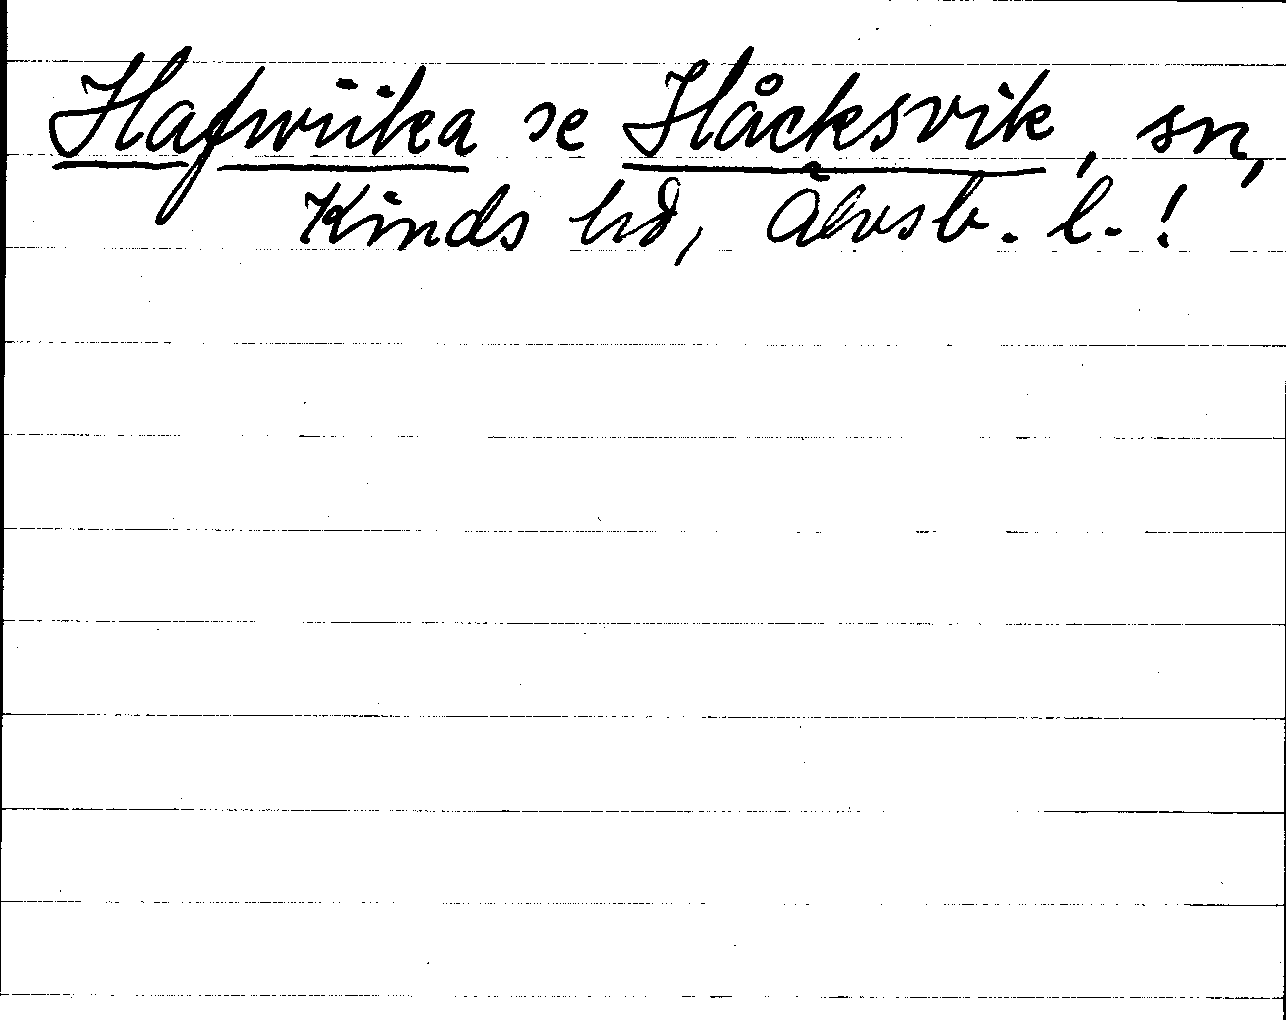 Hafwiika se Håcksvik, sn,
Kinds hd, Älvsb. l.!